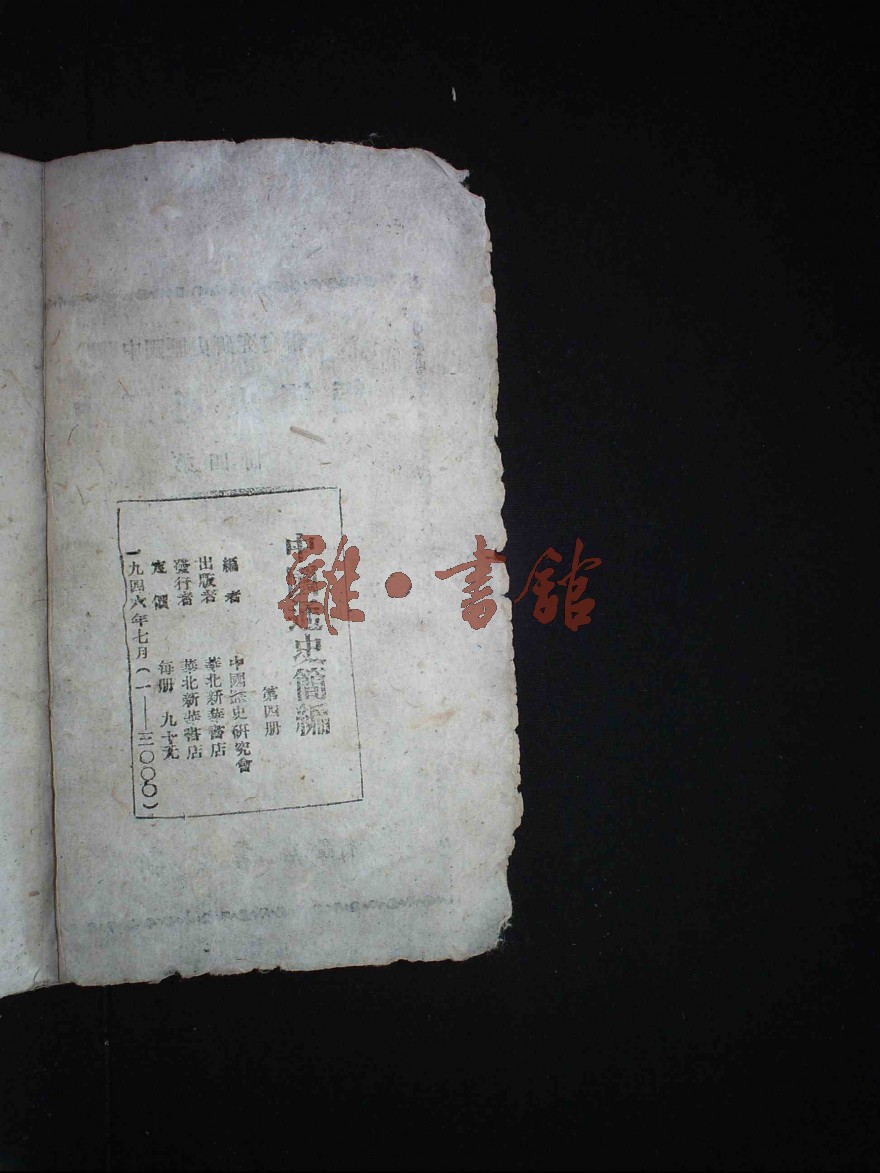 中國通史簡編
第四册
編者 中國歷史研究會
出版者 華北新華書店
發行者 華北新華書店
定價 每册 九十元
一九四六年七月(一——三〇〇〇)
雜·書館